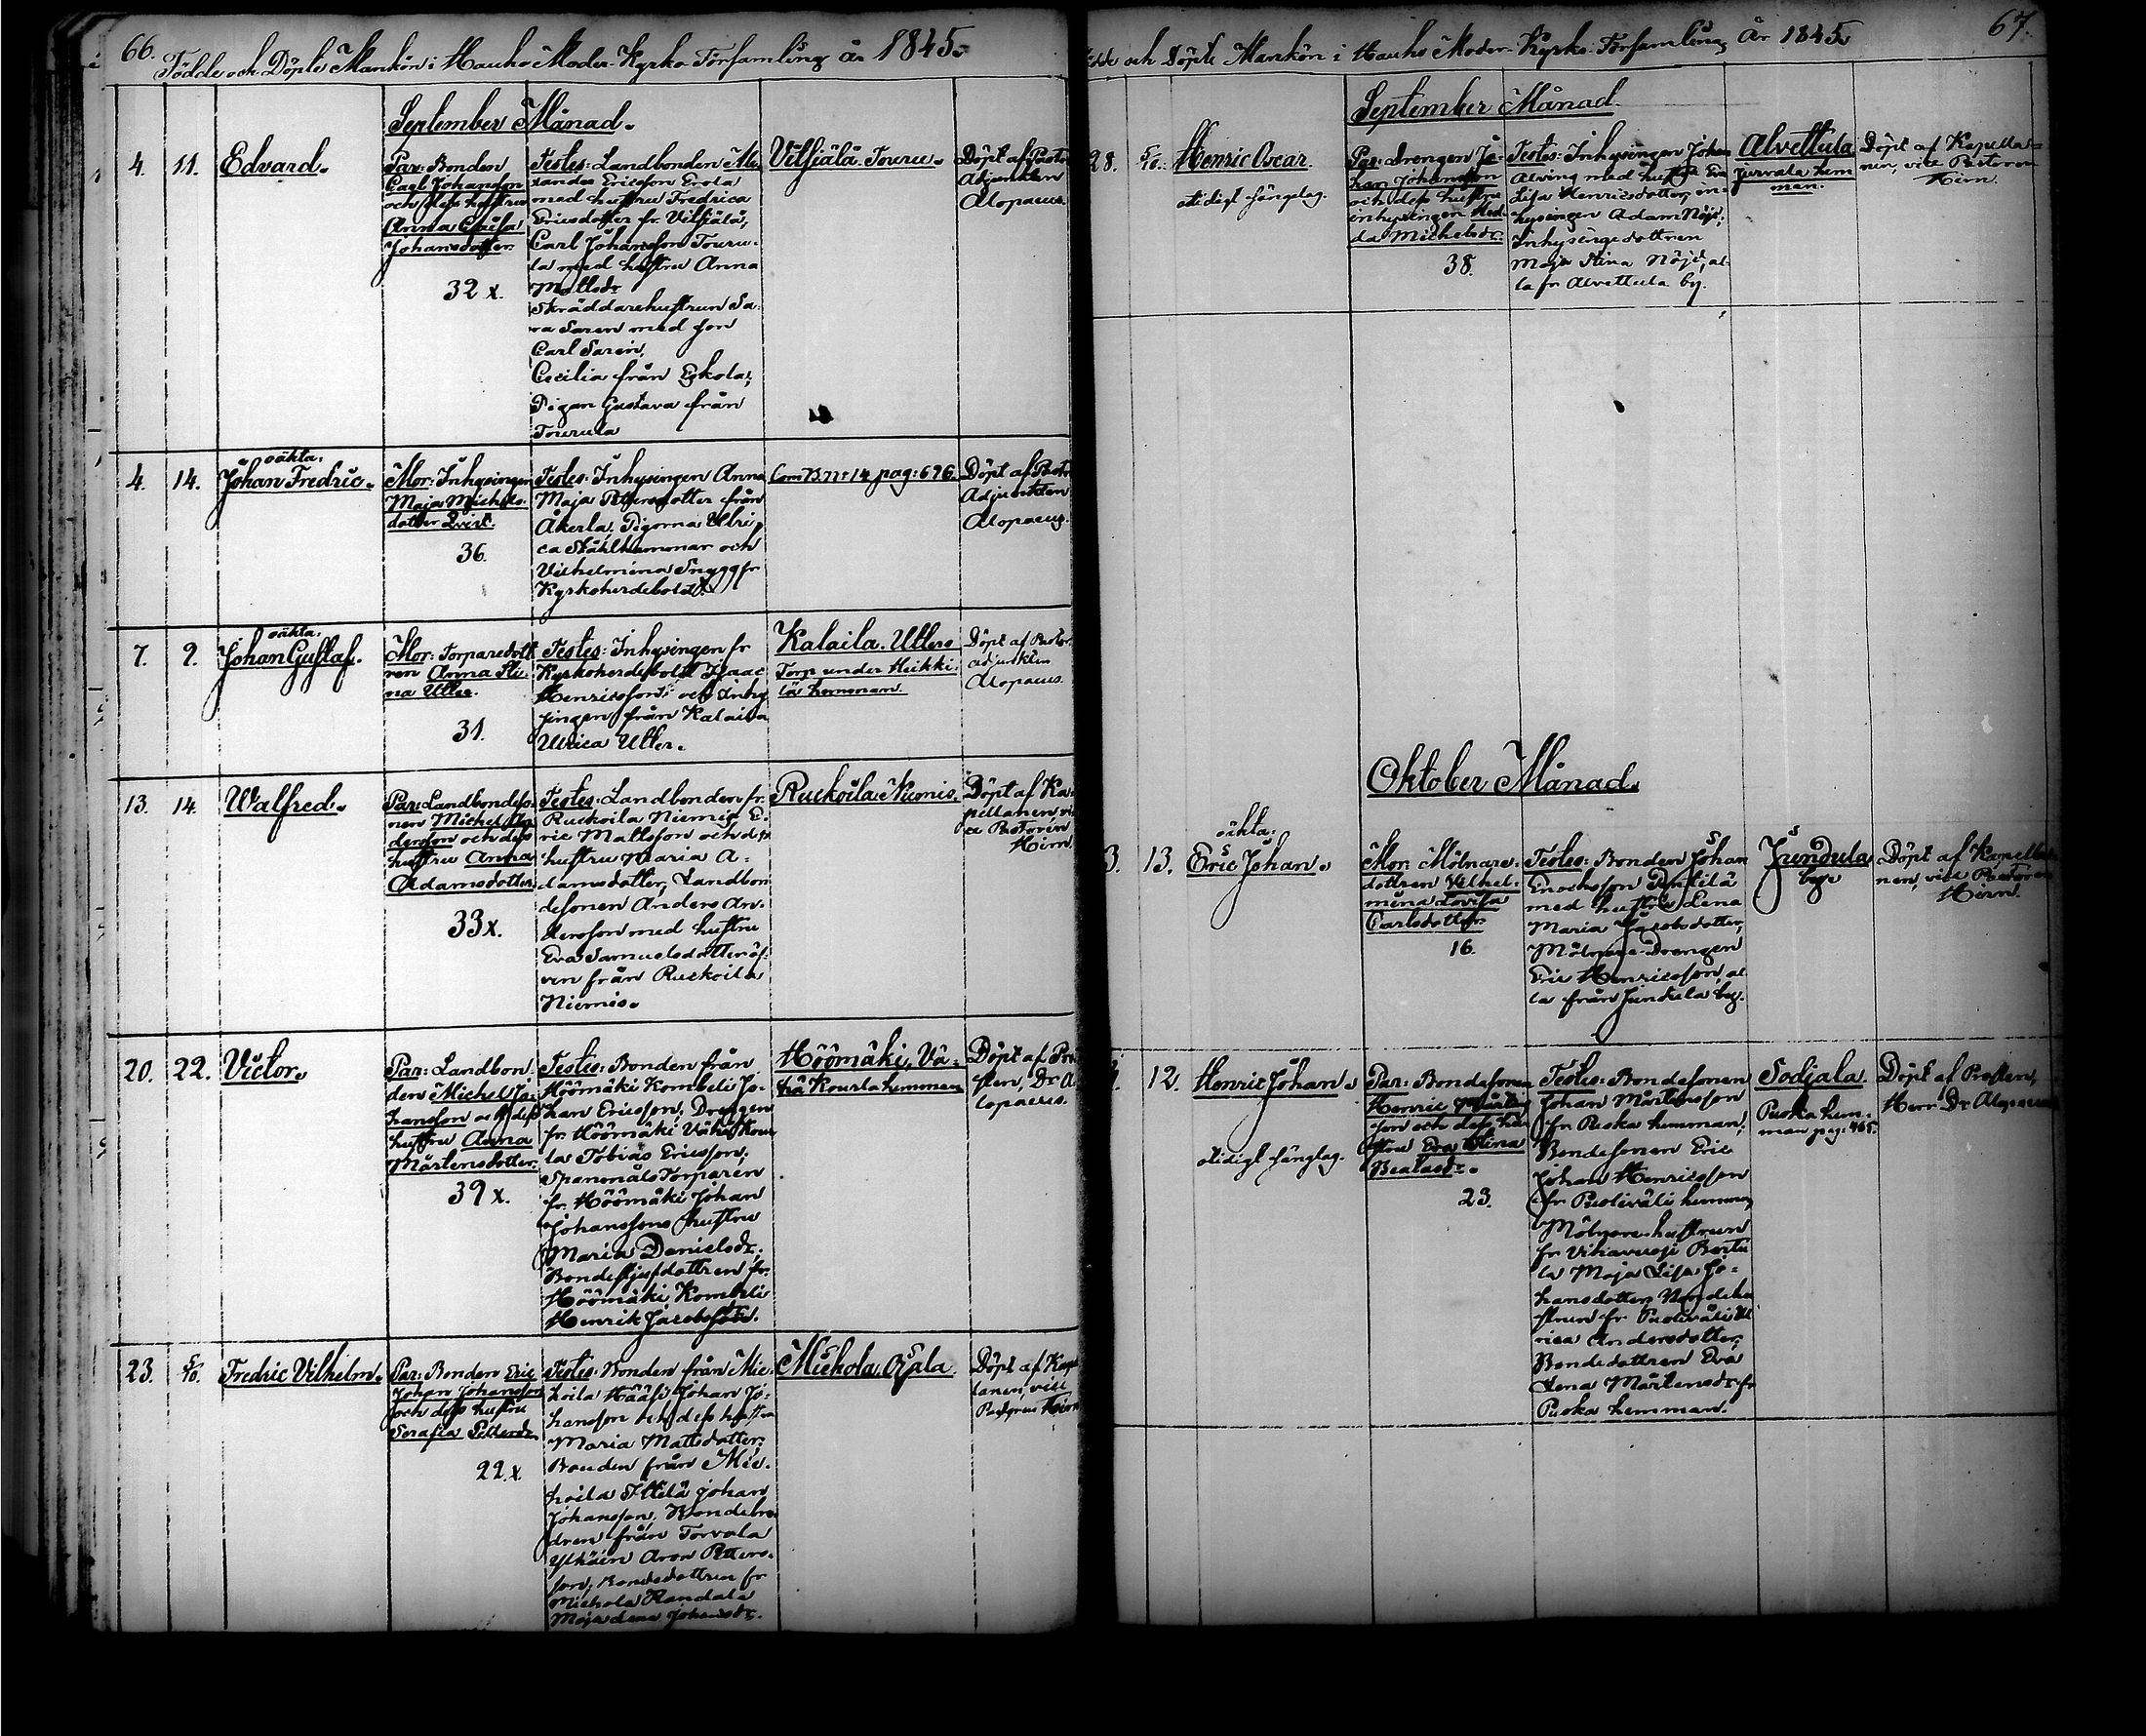 66. Födde och Döpte Mankön i Hauho Moder-Kyrko Församling År 1845.
September Månad.
4. 11. Edvard.
Par: Bonden
Carl Johansson
och dess hustru
Anna Caisa
Johansdotter.
32 x.
Testes: Landbonden
Ericsson Erola
med hustru Fredrica
Ericsdotter fr. Vitsiälä,
Carl Johansson Touru-
la med hustru Anna
Mattsdr
Skräddarehustrun Sa-
ra Saren med son
Carl Saren,
Cecilia från Eskola;
Pigan Gustava från
Tourula
Vitsiälä Touru.
Döpt af Pastors
Adjunkten
Alopaeus.
4. 14. oäkta:
Johan Fredric.
Mor: Inhysingen
Maja Michels-
dotter Qvist.
36.
Testes: Inhysingen Anna
Maja från
Åkerla, Pigorna Ulri-
ca Stålhammar och
Vilhelmina Snygg fr
Kyrkoherdebolet
Com B. Nr 14 pag: 696.
Döpt af Pastors
Adjunkten
Alopaeus.
7. 9. oäkta:
Johan Gustaf.
Mor: Torparedott-
ren Anna Sti-
na Utter.
31.
Testes: Inhysingen fr
Kyrkoherdebolet Isaac
Henricsson och Inhy-
singen från Kalaila
Ulrica Utter.
Kalaila. Utters
Torp under Heikki-
lä hemman.
Döpt af Pastors
adjunkten
Alopaeus.
13. 14. Walfred.
Par: Landbondeso-
nen Michel An-
dersson och dess
hustru Anna
Adamsdotter
33 x.
Testes: Landbonden fr.
Ruckoila Niemis E-
ric Mattsson och dess
hustru Maria A-
damsdotter, Landbon-
desonen Anders An-
dersson med hustru
Eva Samuelsdotter äf-
ven från Ruckoila
Niemis.
Ruckoila Niemis.
Döpt af Ka-
pellanen vi-
ce Pastoren
Hirn.
20. 22. Victor.
Par: Landbon-
den Michel Jo-
hansson och dess
hustru Anna
Mårtensdotter.
39 x.
Testes: Bonden från
Höömäki Kombeli Jo-
han Ericsson; Drengen
fr. Höömäki Vähä Kour-
la Tobias Ericsson;
Spanmåls Torparen
fr. Höömäki Johan
Johanssons hustru
Maria Danielsdr;
Bondestjufdottren fr.
Höömäki Kombeli
Henrik Jacobsson.
Höömäki, Vä-
hä Kourla hemman
Döpt af Pro-
sten, Dr A-
lopaeus.
23. 5/10. Fredric Vilhelm.
Par: Bonden Eric
Johan Johansson
och dess hustru
Serafia Pettersdr
22 x.
Testes: Bonden från Mie-
hoila Hääsi Johan Jo-
hansson och dess hustru
Maria Mattsdotter;
Bonden från Mie-
hoila Ittelä Johan
Johansson, Bondebro-
dren från Torvala
Ylhäin Aron Petters-
son; Bondedottren fr
Miehola Kandala
Maja Lena Johansdr.
Miehola, Ojala.
Döpt af Kapel-
lanen, vice
Pastoren Hirn
67.
och Döpte Mankön i Hauho Moder-Kyrko-Församling År 1845.
September Månad.
28. 5/10. Henric Oscar.
otidigt sängelag.
Par: Drengen Jo-
han Johansson
och dess hustru
inhysingen Hed-
da Michelsdr.
38.
Testes: Inhysingen Johan
Alving med hustru Eva
Lisa Henricsdotter, in-
hysingen Adam Nöjd;
Inhysingedottren
Maja Stina Nöjd, al-
la fr Alvettula by.
Alvettula
Jurvala hem
man.
Döpt af Kapella-
nen, vice Pastoren
Hirn.
Oktober Månad.
3. 13. oäkta:
Eric Johan.
Mor: Mölnare-
dottren Vilhel-
mina Lovisa
Carlsdotter.
16.
Testes: Bonden Johan
Enochsson Penttilä
med hustru Lena
Maria Jacobsdotter,
Mölnare-Drengen
Eric Henricsson, al-
la från Jundula by.
Jundula
by
Döpt af Kapella-
nen, vice Pastoren
Hirn.
12. Henric Johan.
otidigt sänglag.
Par: Bondesonen
Henric Mårtens-
son och dess hu-
stru Eva Stina
Beatasdr.
23.
Testes: Bondesonen
Johan Mårtensson
fr Puska hemman;
Bondesonen Eric
Johan Henricsson
fr. Puoliväli hemman,
Mölnare-hustrun
fr Vihavuosi Bertu-
la Maja Lisa Jo-
hansdotter, Bondehu-
strun fr Puoliväli Ul-
rica Andersdotter,
Bondedottren Eva
Lena Mårtensdr fr
Puska hemman.
Sodjala.
Puska hem-
man pag: 465.
Döpt af Prosten,
Herr Dr Alopaeus